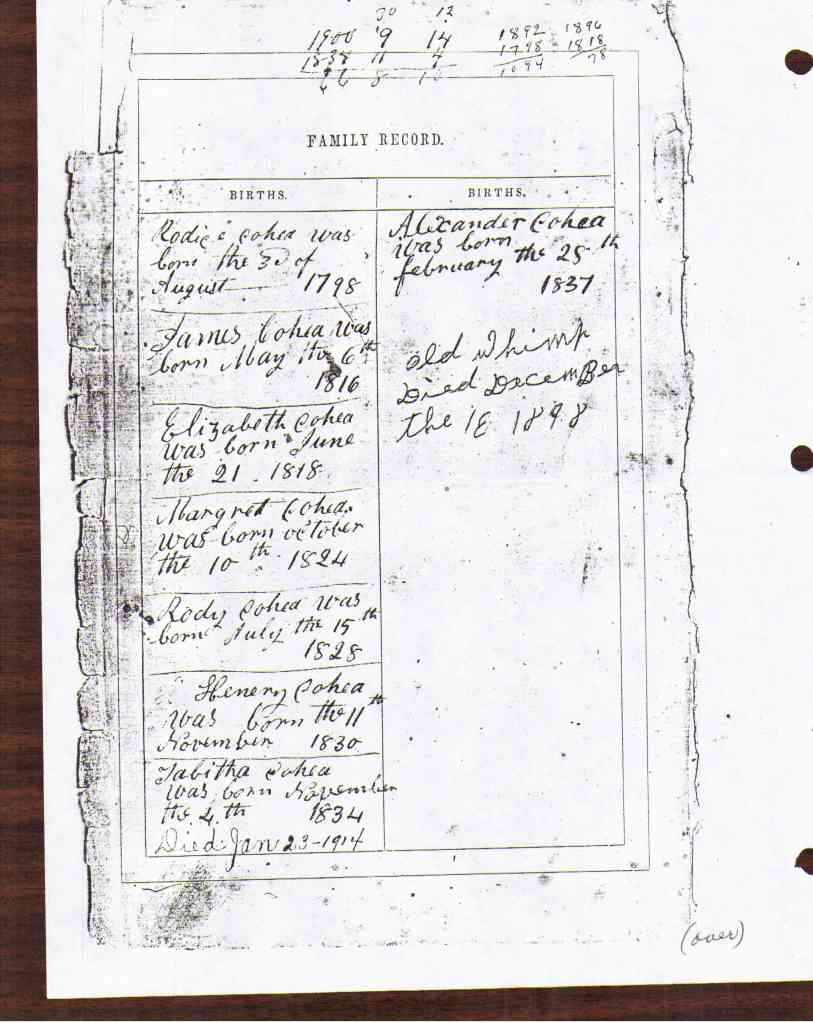 30 12
1900 9 14
1838 11 4
8
1892 1896
1798 1818
1094 78
FAMILY RECORD.
BIRTHS.
Rodice Cohea was
born the 3d of
August 1798
James Cohea was
born May the 6th
1816
Elizabeth Cohea
was born June
the 21 1818
Margret Cohea
was born october
the 10th 1824
Rody Cohea was
born July the 15th
1828
Henery Cohea
was born the 11th
November 1830
Tabitha Cohea
was born November
the 4th 1834
Died Jan 23-1914
BIRTHS.
Alexander Cohea
was born
february the 28th
1837
old whimp
Died DecemBer
the 1898
(over)